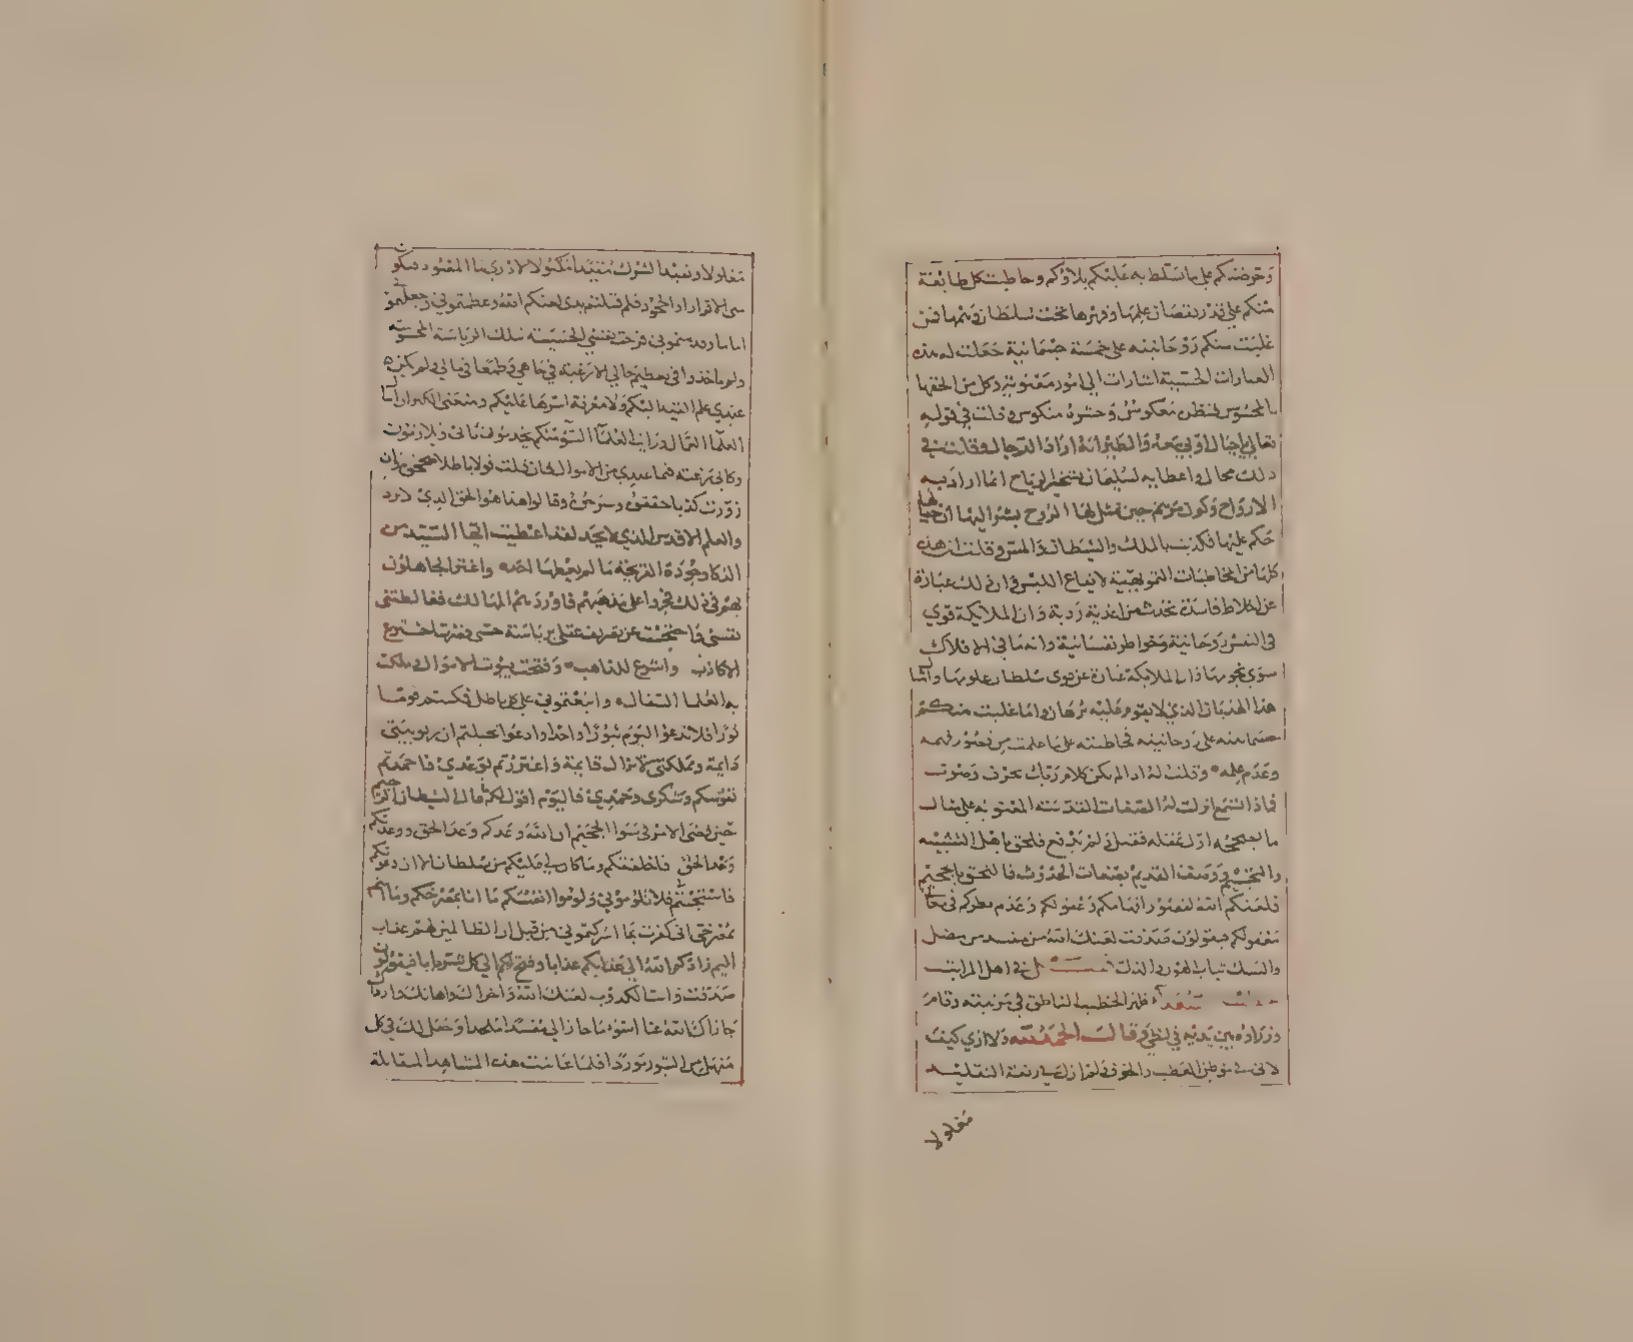 وخوضتكم على ما سلط به عليكم بلاؤكم وخاطبت كل طائفة
منكم على قدر نقصان علمها وقهرها تحت سلطان وهمها فمن
غلبت منكم روحانيته على خمسة جثمانية جعلت له هذه
العبارات الحسية اشارات الى امور معنوية وكل من الحقها
بالمحسوس فنظره معكوس وحشره منكوس وقلت في قوله
تعالى يا جبال اوبي معه والطير انه اراد الرجال وقلت في
ذلك محال واعطائه لسليمان تسخير الرياح انما اراد به
الارواح وكون مريم حين تمثل لها الروح بشرا لها ان خيالها
حكم عليها فكذبت بالملك والشيطان والمس وقلت ان هذه
كلها من مخاطبات التمويهية لايقاع اللبس وان ذلك عبارة
عن اخلاط فاسدة تحدث من اغذية ردية وان الملائكة قوي
في النفس روحانية وخواطر نفسانية وانه ما في الافلاك
سوى نجومها وان الملائكة عبارة عن قوى سلطان علومها وامثال
هذا الهذيان الذي لا يقوم عليه برهان واما غلبت منكم
جسمانيته على روحانيته فخاطبته على ما علمت من قصور فهمه
وعدم علمه وقلت له اذا لم يكن كلام ربك بحرف وصوت
فاذا تسمع اولت له الصفات القدسية المعنوية على مثال
ما عقله فقبل لم يدفع فلحق باهل التشبيه
والتجسيم ووصف القديم بصفات الحدوث فالتحق بالجحيم
فلعنكم الله لقصور افهامكم وغفولكم وعدم نظركم في
معقولكم فيقولون صدقت لعنك الله من مفسد مضل
والبسك ثياب الهون والذل
ظهر الخطيب الناطق في مرتبته وقام
وزراؤه بين يديه في لظى وقالت الحمد لله ولا ادري كيف
لاني في موطن العطب والخوف لم ازل في ربقة التقليد
مغلولا
مغلولا وبقيد الشرك مقيدا مكبولا لا ادري ما المقصود
سوى الاقرار او الجحود فلم قبلتم يدي لعنكم الله وعظمتموني وجعلتموني
اماما وقدمتموني فرحت بنفسي الخسيسة تلك الرياسة المحسوسة
ولم تاخذوا في تعظيم حالي الا رغبة في جاهي وطمعا في مالي ولم يكن
عندي علم القيه اليكم ولا معرفة اسرها عليكم ومنعني الكبر ان اسأل
العلما العمال ورايت العلما السوء منكم يخدمون مالي ويلازمون
وكاني زعمته فما عندي من الاموال فان قلت قولا باطلا صححوه وان
زورت كذبا حققوه وسرحوه وقالوا هذا هو الحق الذي لا يرد
والعلم الاقدس الذي لا يحد لقد اعطيت ايها السيد من
الذكا وجودة القريحة ما لم يعطها احد واغتر الجاهلون
بهم في ذلك فجروا على مذهبهم فاوردهم المهالك فغالطتني
نفسي فاحتجبت عن تعريف عقلي برياسة حسي فصرت اخترع
الاكاذب واشرع للمذاهب وفتحت بيوت الاموال فملكت
بها العلما السفال وابتعتموني على كل باطل فكنتم قوما
بورا فلا تدعوا اليوم ثبورا واحدا وادعوا تخيلتم ان ربوبيتي
دايمة ومملكتي لا تزال قايمة واغتررتم بوعدي فاحمدتم
نفوسكم وشكري وحمدي فاليوم اقول لكم ما قال الشيطان الرجيم
حين قضى الامر في سوا الجحيم ان الله وعدكم وعد الحق ووعدتكم
وعد الحق فاخلفتكم وما كان لي عليكم من سلطان الا ان دعوتكم
فاستجبتم فلا تلوموني ولوموا انفسكم ما انا بمصرخكم وما انتم
بمصرخي اني كفرت بما اشركتموني من قبل ان الظالمين لهم عذاب
اليم زادكم الله الى عذابكم عذابا وفتح لكم الى كل شر بابا فيقولون
صدقت وانت الكذوب لعنك الله واخزاك واهانك وارداك
جازاك الله عنا اسوء ما جازى مفسدا ملحدا وجعل لك في كل
منهل من الثبور موردا فلما عاينت هذه المشاهد المقابلة